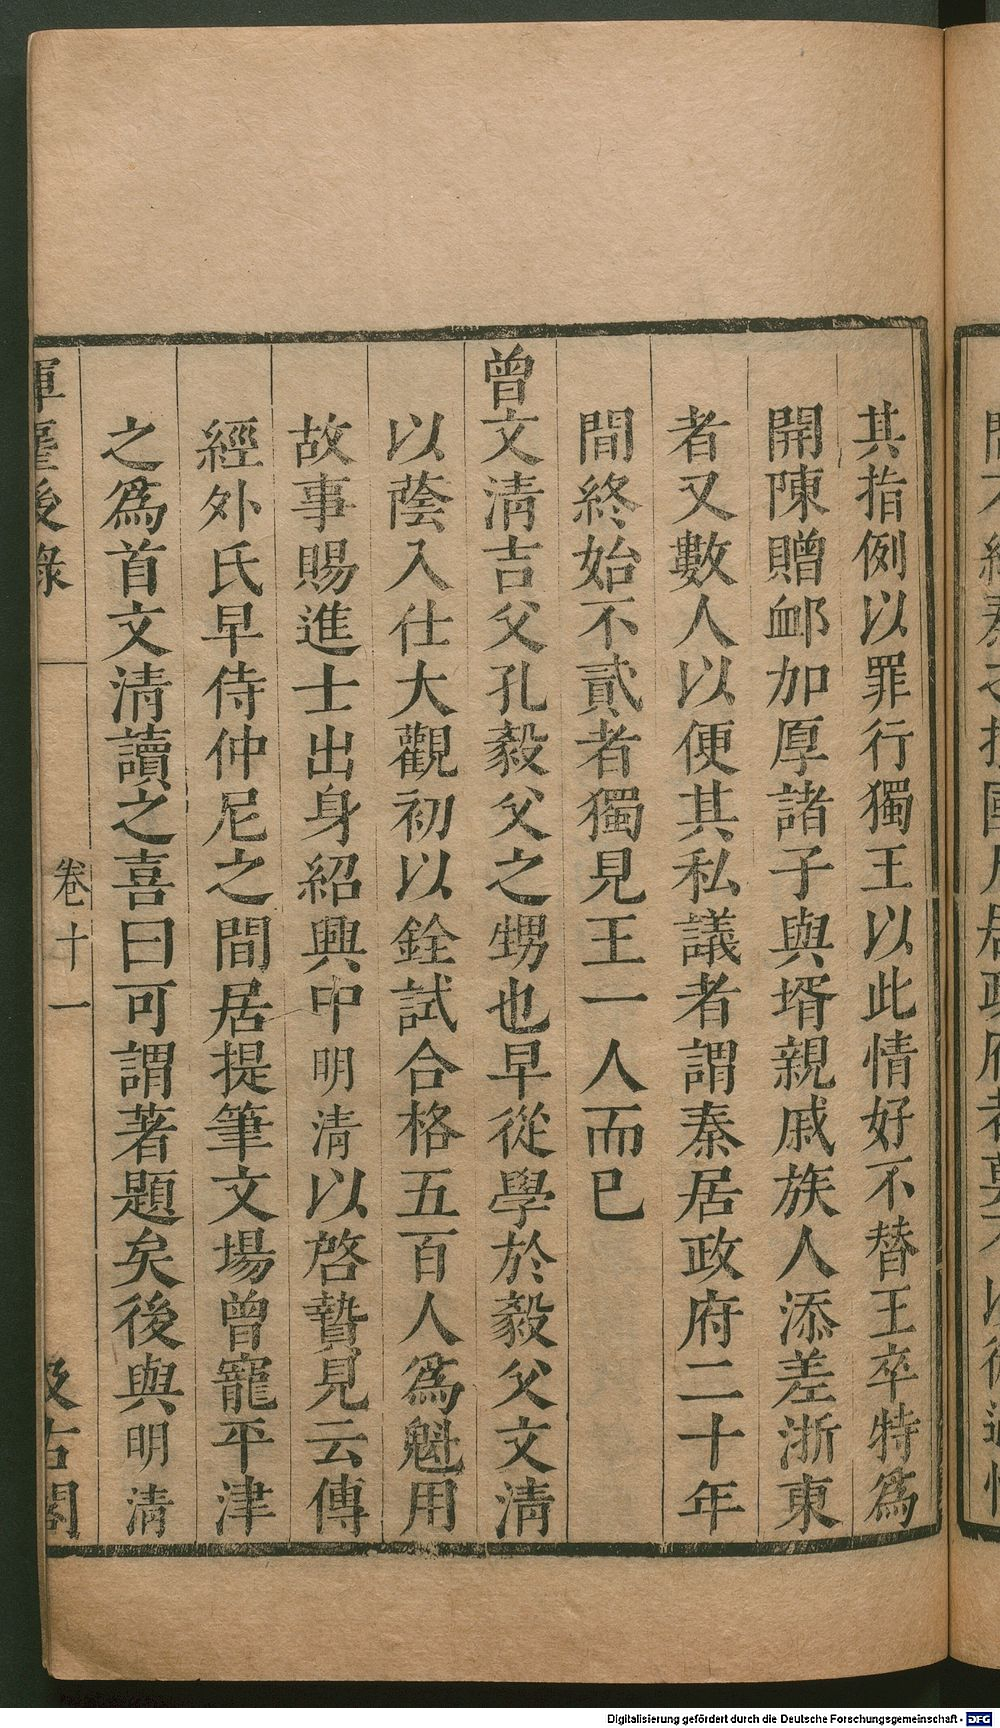 其指例以罪行獨王以此情好不替王卒特爲
開陳贈䘏加厚諸子與壻親戚族人添差浙東
者又數人以便其私議者謂秦居政府二十年
間終始不貳者獨見王一人而已
曾文清吉父孔毅父之甥也早從學於毅父文清
以蔭入仕大觀初以銓試合格五百人爲魁用
故事賜進士出身紹興中明清以啓贄見云傳
經外氏早侍仲尼之間居提筆文場曾寵平津
之爲首文清讀之喜曰可謂著題矣後與明清
揮麈後錄 卷十一 汲古閣
Digitalisierung gefördert durch die Deutsche Forschungsgemeinschaft - DFG